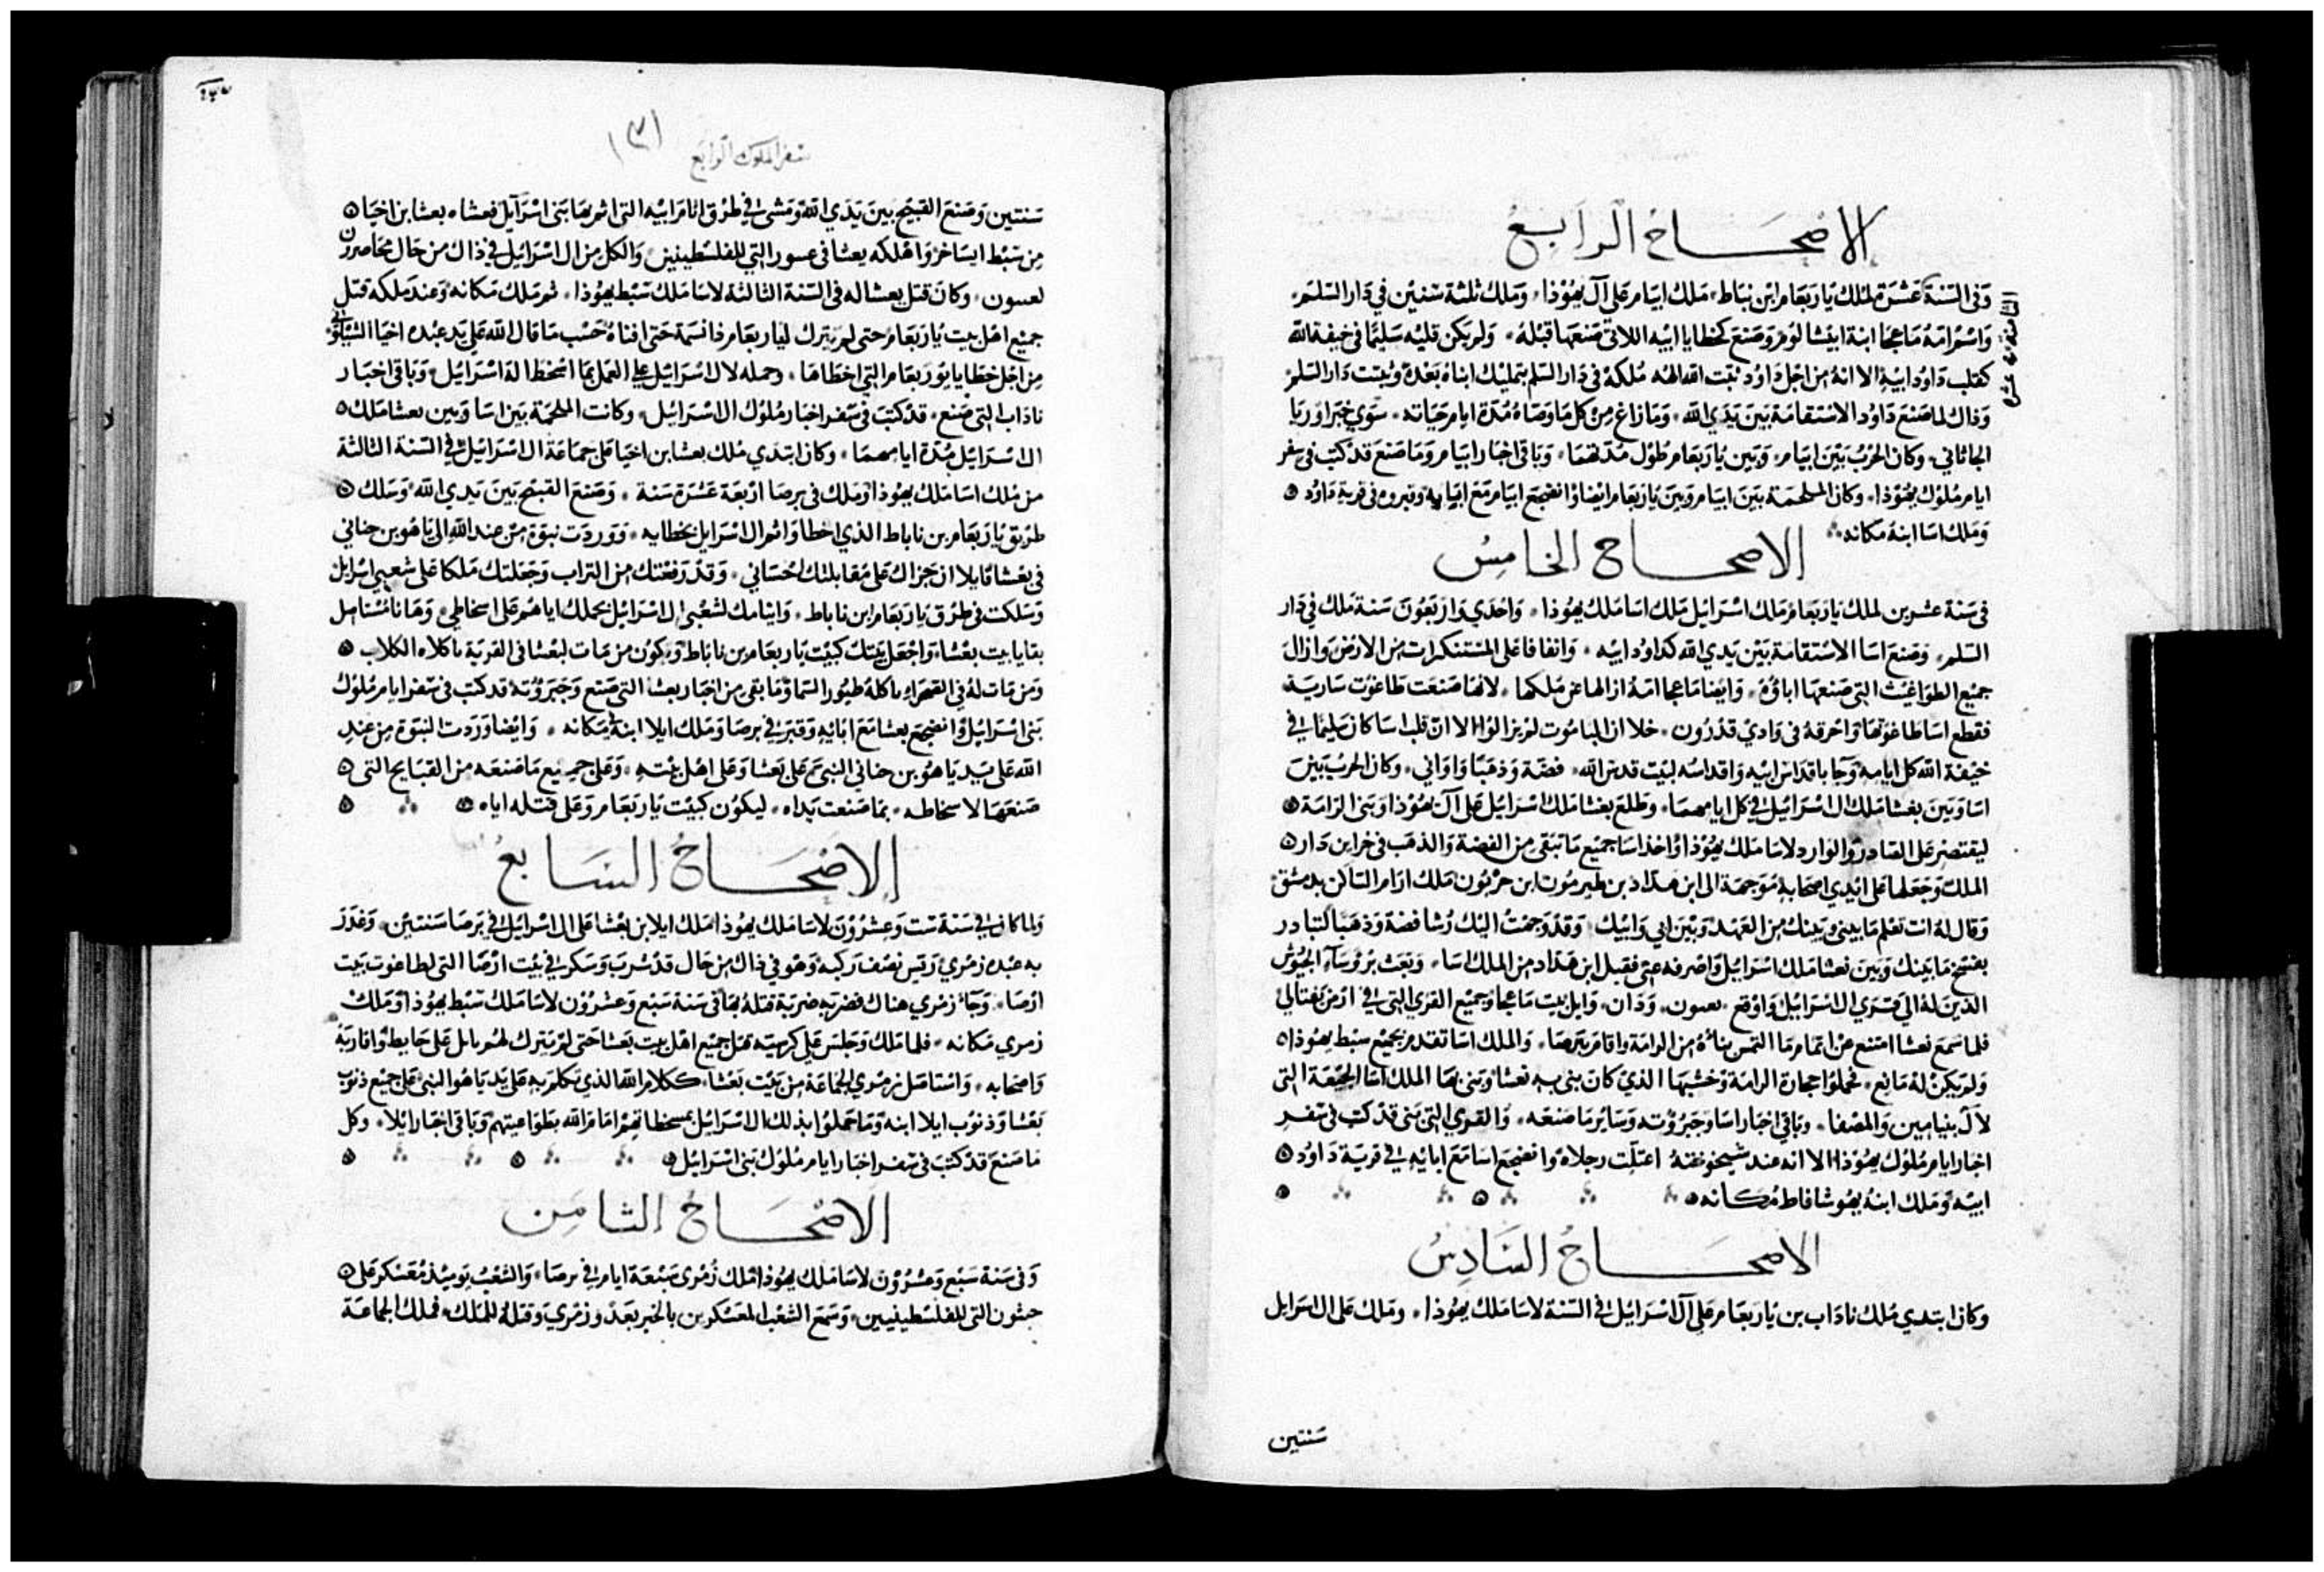 الاصحاح الرابع
وفى السنة عشرة لملك ياربعام ابن نباط ملك ابيام على آل يهوذا وملك ثلثة سنين في دار السلم
الثامنة
واسم امه ماعخا ابنة ابيشالوم وصنع كخطايا ابيه اللاتى صنعها قبله ولم يكن قلبه سليما فى خيفة الله
كقلب داود ابيه الا انه من اجل داود ثبت الله الهه ملكه فى دار السلم بتمليك ابناه بعده وثبتت دار السلم
وذاك لما صنع داود الاستقامة بين يدي الله وما زاغ من كل ما وصاه مدة ايام حياته سوي خبر اوريا
الجاثاني وكان الحرب بين ابيام وبين ياربعام طول مدتهما وباقى اخبار ابيام وما صنع قد كتب فى سفر
ايام ملوك يهوذا وكان الملحمة بين ابيام وبين ياربعام ايضا وانضجع ابيام مع ابايه وقبروه فى قرية داود
وملك اسا ابنه مكانه
الاصحاح الخامس
فى سنة عشرين لملك ياربعام ملك اسرايل ملك اسا ملك يهوذا واحدي واربعون سنة ملك في دار
السلم وصنع اسا الاستقامة بين يدي الله كداود ابيه وانفا فاعلى المستنكرات من الارض وازال
جميع الطواغيت التى صنعها اباؤه وايضا ماعخا امه ازالها عن ملكها لانها صنعت طاغوت سارية
فقطع اسا طاغوتها واحرقه فى وادي قدرون خلا ان البامُوت لم يزالوا الا ان قلب اسا كان سليما في
خيفة الله كل ايامه وجا باقداس ابيه واقداسه لبيت قدس الله فضة وذهبا واواني وكان الحرب بين
اسا وبين بعشا ملك ال اسرايل في كل ايامهما وطلع بعشا ملك اسرايل على آل يهوذا وبنى الرامة
ليقتصر على الصادر والوارد لاسا ملك يهوذا واخذ اسا جميع ما تبقى من الفضة والذهب فى خزاين دار
الملك وجعلها على ايدي اصحابه موجهة الى ابن هداد بن طبرمون ابن حزيون ملك ارام الساكن بدمشق
وقال له انت تعلم ما بيني وبينك من العهد وبين ابي وابيك وقد وجهت اليك رشا فضة وذهبا لتبادر
بفسخ ما بينك وبين بعشا ملك اسرايل واصرفه عنى فقبل ابن هداد من الملك اسا وبعث برؤسآء الجيوش
الذين له الى قري ال اسرايل واوقع بعيون ودان وابل بيت ماعخا وجميع القري التى في ارض نفتالي
فلما سمع بعشا امتنع عن اتمام ما التمس بناؤه من الرامة واقام بترصا والملك اسا تقدم بجميع سبط يهوذا
ولم يكن له مانع فحملوا حجارة الرامة وخشبها الذي كان بنى به بعشا وبنى بها الملك اسا الجبعة التى
لآل بنيامين والمصفا وباقى اخبار اسا وجبروته وساير ما صنعه والقري التى بنى قد كتب فى سفر
اخبار ايام ملوك يهوذا الا انه عند شيخوخته اعتلت رجلاه وانضجع اسا مع ابايه في قرية داود
ابيه وملك ابنه يهوشافاط مكانه
الاصحاح السادس
وكان ابتدي ملك ناداب بن ياربعام على آل اسرايل في السنة لاسا ملك يهوذا وملك على ال اسرايل
سنتين
سفر الملوك الرابع
سنتين وصنع القبيح بين يدي الله ومشى في طرق اثام ابيه التى اثم بها بنى اسرآيل فعشاه بعشا بن اخيا
من سبط ايساخر واهلكه بعشا فى عسور التي للفلسطينين والكل من ال اسرايل في ذاك من حال محاصرون
لعسون وكان قتل بعشا له فى السنة الثالثة لاسا ملك سبط يهوذا ثم ملك مكانه وعند ملكه قتل
جميع اهل بيت ياربعام حتى لم يترك لياربعام ذا نسمة حتى افناه حسب ما قال الله على يد عبده اخيا الشيلوني
من اجل خطايا يوربعام التي اخطاها وحمله لال اسرايل على العمل بما اسخط اله اسرايل وباقى اخبار
ناداب التى صنع قد كتب فى سفر اخبار ملوك ال اسرايل وكانت الملحمة بين اسا وبين بعشا ملك
ال اسرايل مدة ايامهما وكان ابتدي ملك بعشا بن اخيا على جماعة ال اسرايل في السنة الثالثة
من ملك اسا ملك يهوذا وملك فى برصا اربعة عشرة سنة وصنع القبيح بين يدي الله وسلك
طريق ياربعام بن ناباط الذي اخطا واثم ال اسرايل بخطايه ووردت نبوة من عند الله الى ياهو بن حناني
فى بعشا قايلا ان جزاك على مقابلتك احساني وقد رفعتك من التراب وجعلتك ملكا على شعبى اسرايل
وسلكت فى طرق ياربعام ابن ناباط واثامك لشعبى ال اسرايل بحملك اياهم على اسخاطي وها انا مستاصل
بقايا بيت بعشا واجعل بيتك كبيت ياربعام بن ناباط ويكون من مات لبعشا فى القرية ياكلاه الكلاب
ومن مات له في الصحراء ياكله طيور السما وما بقى من اخبار بعشا التى صنع وجبروته قد كتب فى سفر ايام ملوك
بنى اسرايل وانضجع بعشا مع ابائيه وقبر في برصا وملك ايلا ابنه مكانه وايضا وردت النبوة من عند
الله على يد ياهو بن حناني النبى على بعشا وعلى اهل بيته وعلى جميع ما صنعه من القبايح التى
صنعها لاسخاطه بما صنعت يداه ليكون كبيت ياربعام وعلى قتله اياه
الاصحاح السابع
ولما كان في سنة ست وعشرون لاسا ملك يهوذا ملك ايلا بن بعشا على ال اسرايل في برصا سنتين وغدر
به عبده زمري رئيس نصف ركبه وهو في ذاك من حال قد شرب وسكر في بيت ارصا التى لطاغوت بيت
ارصا وجآء زمري هناك فضربه ضربة قتله بها فى سنة سبع وعشرون لاسا ملك سبط يهوذا وملك
زمري مكانه فلما ملك وجلس على كرسيه قتل جميع اهل بيت بعشا حتى لم يترك لهم بايل على حايط واقاربه
واصحابه واستاصل زمري الجماعة من بيت بعشا ككلام الله الذي تكلم به على يد ياهو النبى على جميع ذنوب
بعشا وذنوب ايلا ابنه وما حملوا بذلك ال اسرايل بسخطاتهم امام الله بطواغيتهم وباقى اخبار ايلا وكل
ما صنع قد كتب فى سفر اخبار ايام ملوك بنى اسرايل
الاصحاح الثامن
وفى سنة سبع وعشرون لاسا ملك يهوذا ملك زمرى سبعة ايام في برصا والشعب يوميذ معسكر على
جبثون التى للفلسطينيين وسمع الشعب المعسكرين بالخبر بغدر زمري وقتله للملك فملك الجماعة